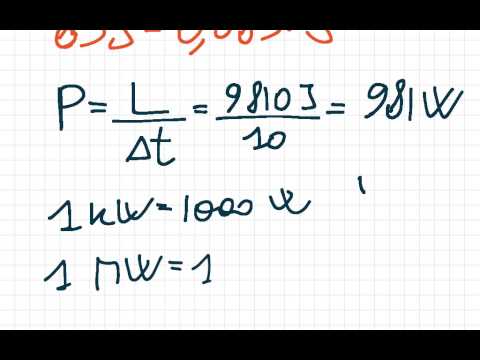 P = L / Δt = 9810J / 10 = 981W
1 kW = 1000 W
1 MW = 1